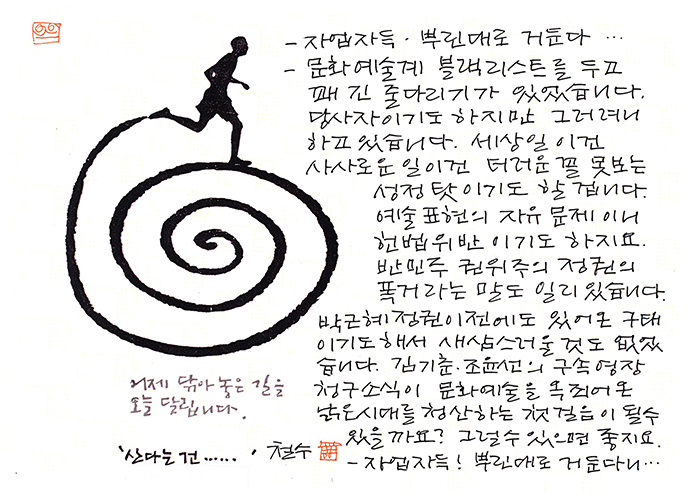 - 자업자득· 뿌린대로 거둔다 …
- 문화예술계 블랙리스트를 두고
꽤 긴 줄다리기가 있었습니다.
당사자이기도 하지만 그러려니
하고 있습니다. 세상일이건
사사로운 일이건 더러운 꼴 못보는
성정 탓이기도 할겁니다.
예술표현의 자유 문제이니
헌법위반이기도 하지요.
반민주 권위주의 정권의
폭거라는 말도 일리있습니다.
박근혜정권이전에도 있어온 구태
이기도해서 새삼스러울 것도 없었
습니다. 김기춘·조윤선의 구속영장
청구소식이 문화예술을 옥죄어온
낡은시대를 청산하는 첫걸음이 될수
있을까요? 그럴수있으면 좋지요.
- 자업자득! 뿌린대로 거둔다니…
어제 닦아놓은 길을
오늘 달립니다.
'산다는건……' · 철수